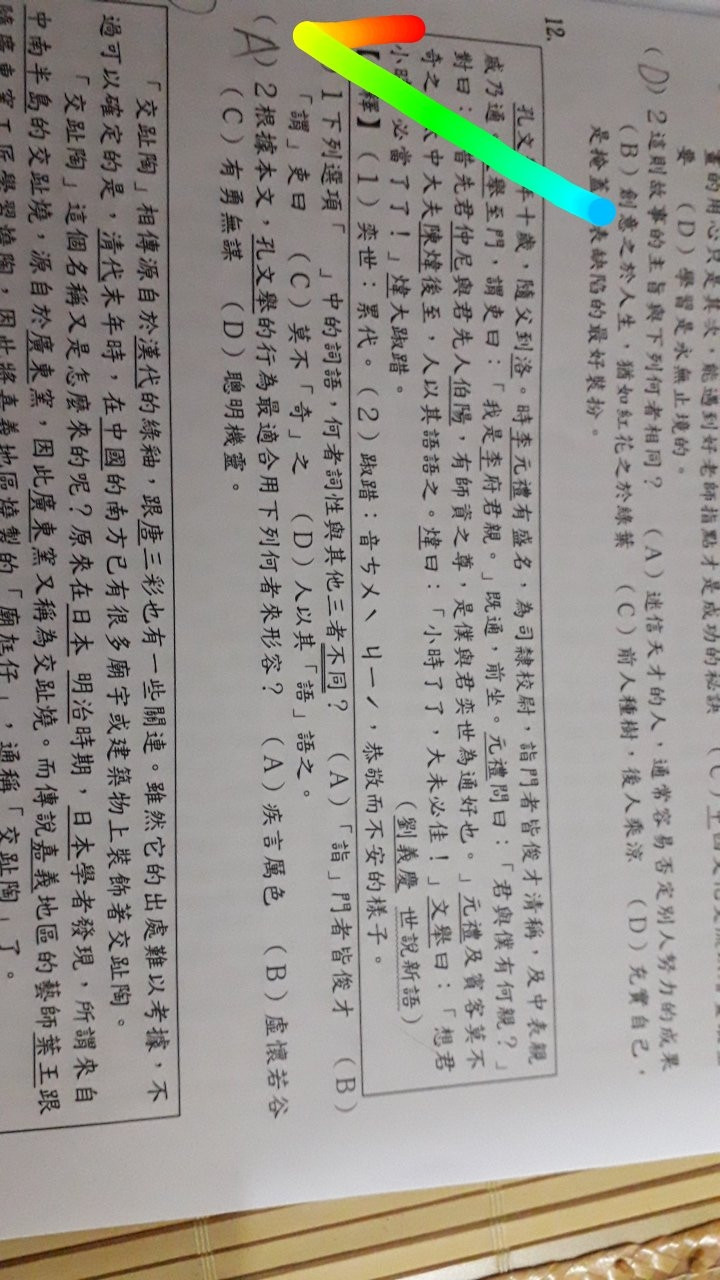 畫的用心只是其次，能遇到好老師指點才是成功的秘訣 (C)
要 (D)學習是永無止境的。
(D) 2這則故事的主旨與下列何者相同？ (A)迷信天才的人，通常容易否定別人努力的成果
(B)創意之於人生，猶如紅花之於綠葉 (C)前人種樹，後人乘涼 (D)充實自己，
是掩蓋 表缺陷的最好裝扮。
12.
孔文 年十歲，隨父到洛。時李元禮有盛名，為司隸校尉，詣門者皆俊才清稱，及中表親
戚乃通。 舉至門，謂吏曰：「我是李府君親。」既通，前坐。元禮問曰：「君與僕有何親？」
對曰： 昔先君仲尼與君先人伯陽，有師資之尊，是僕與君奕世為通好也。」元禮及賓客莫不
奇之 中大夫陳煒後至，人以其語語之。煒曰：「小時了了，大未必佳！」文舉曰：「想君
小時 必當了了！」煒大踧踖。 (劉義慶 世說新語)
【 釋】(1)奕世：累代。(2)踧踖：音ㄘㄨˋ ㄐㄧˊ，恭敬而不安的樣子。
( ) 1下列選項「 」中的詞語，何者詞性與其他三者不同？ (A)「詣」門者皆俊才 (B)
「謂」吏曰 (C)莫不「奇」之 (D)人以其「語」語之。
(A) 2根據本文，孔文舉的行為最適合用下列何者來形容？ (A)疾言厲色 (B)虛懷若谷
(C)有勇無謀 (D)聰明機靈。
「交趾陶」相傳源自於漢代的綠釉，跟唐三彩也有一些關連。雖然它的出處難以考據，不
過可以確定的是，清代末年時，在中國的南方已有很多廟宇或建築物上裝飾著交趾陶。
「交趾陶」這個名稱又是怎麼來的呢？原來在日本 明治時期，日本學者發現，所謂來自
中南半島的交趾燒，源自於廣東窯，因此廣東窯又稱為交趾燒。而傳說嘉義地區的藝師葉王跟
隨廣東窯工匠學習燒陶，因此將嘉義地區燒製的「廟尪仔」，通稱「交趾陶」了。